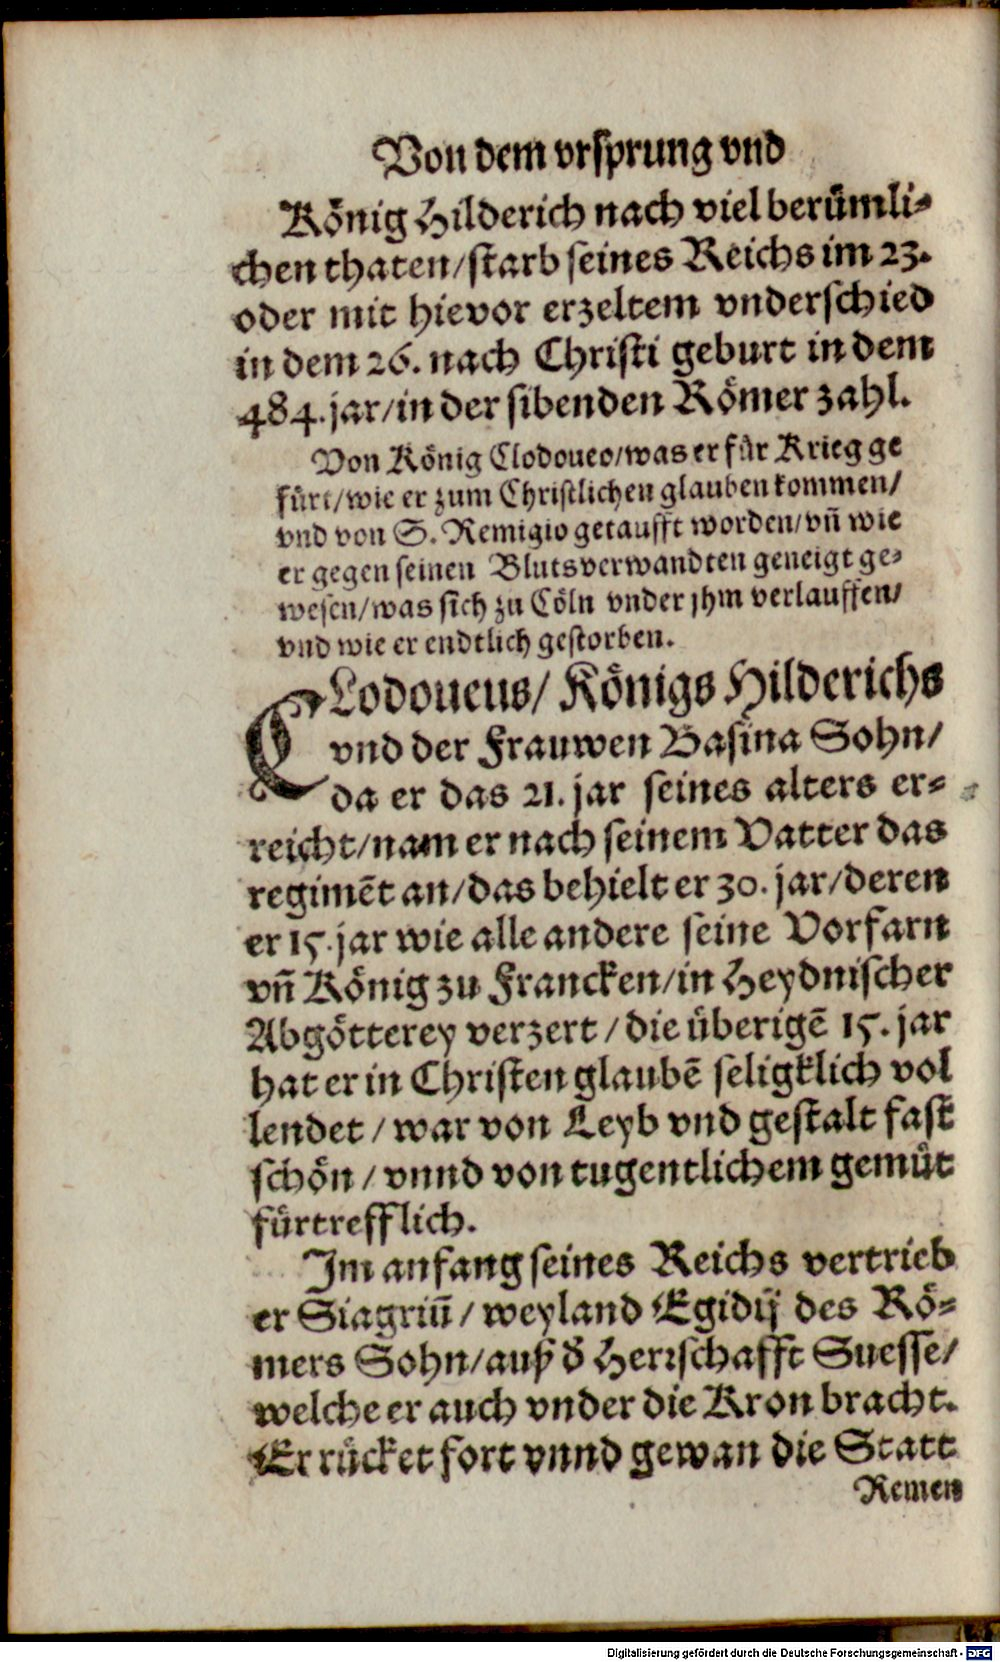 Von dem vrsprung vnd
König Hilderich nach viel berümli-
chen thaten/starb seines Reichs im 23.
oder mit hievor erzeltem vnderschied
in dem 26. nach Christi geburt in dem
484. jar/in der sibenden Römer zahl.
Von König Clodoueo/was er für Krieg ge
fürt/wie er zum Christlichen glauben kommen/
vnd von S. Remigio getaufft worden/vñ wie
er gegen seinen Blutsverwandten geneigt ge-
wesen/was sich zu Cöln vnder jhm verlauffen/
vnd wie er endtlich gestorben.
CLodoueus/ Königs Hilderichs
vnd der Frauwen Basina Sohn/
da er das 21. jar seines alters er-
reicht/nam er nach seinem Vatter das
regimēt an/das behielt er 30. jar/deren
er 15. jar wie alle andere seine Vorfarn
vñ König zu Francken/in Heydnischer
Abgötterey verzert/die überigē 15. jar
hat er in Christen glaubē seligklich vol
lendet/war von Leyb vnd gestalt fast
schön/vnnd von tugentlichem gemüt
fürtrefflich.
Im anfang seines Reichs vertrieb
er Siagriū/weyland Egidij des Rö-
mers Sohn/auß d̄ Herrschafft Suesse/
welche er auch vnder die Kron bracht.
Er rücket fort vnnd gewan die Statt
Remen
Digitalisierung gefördert durch die Deutsche Forschungsgemeinschaft - DFG